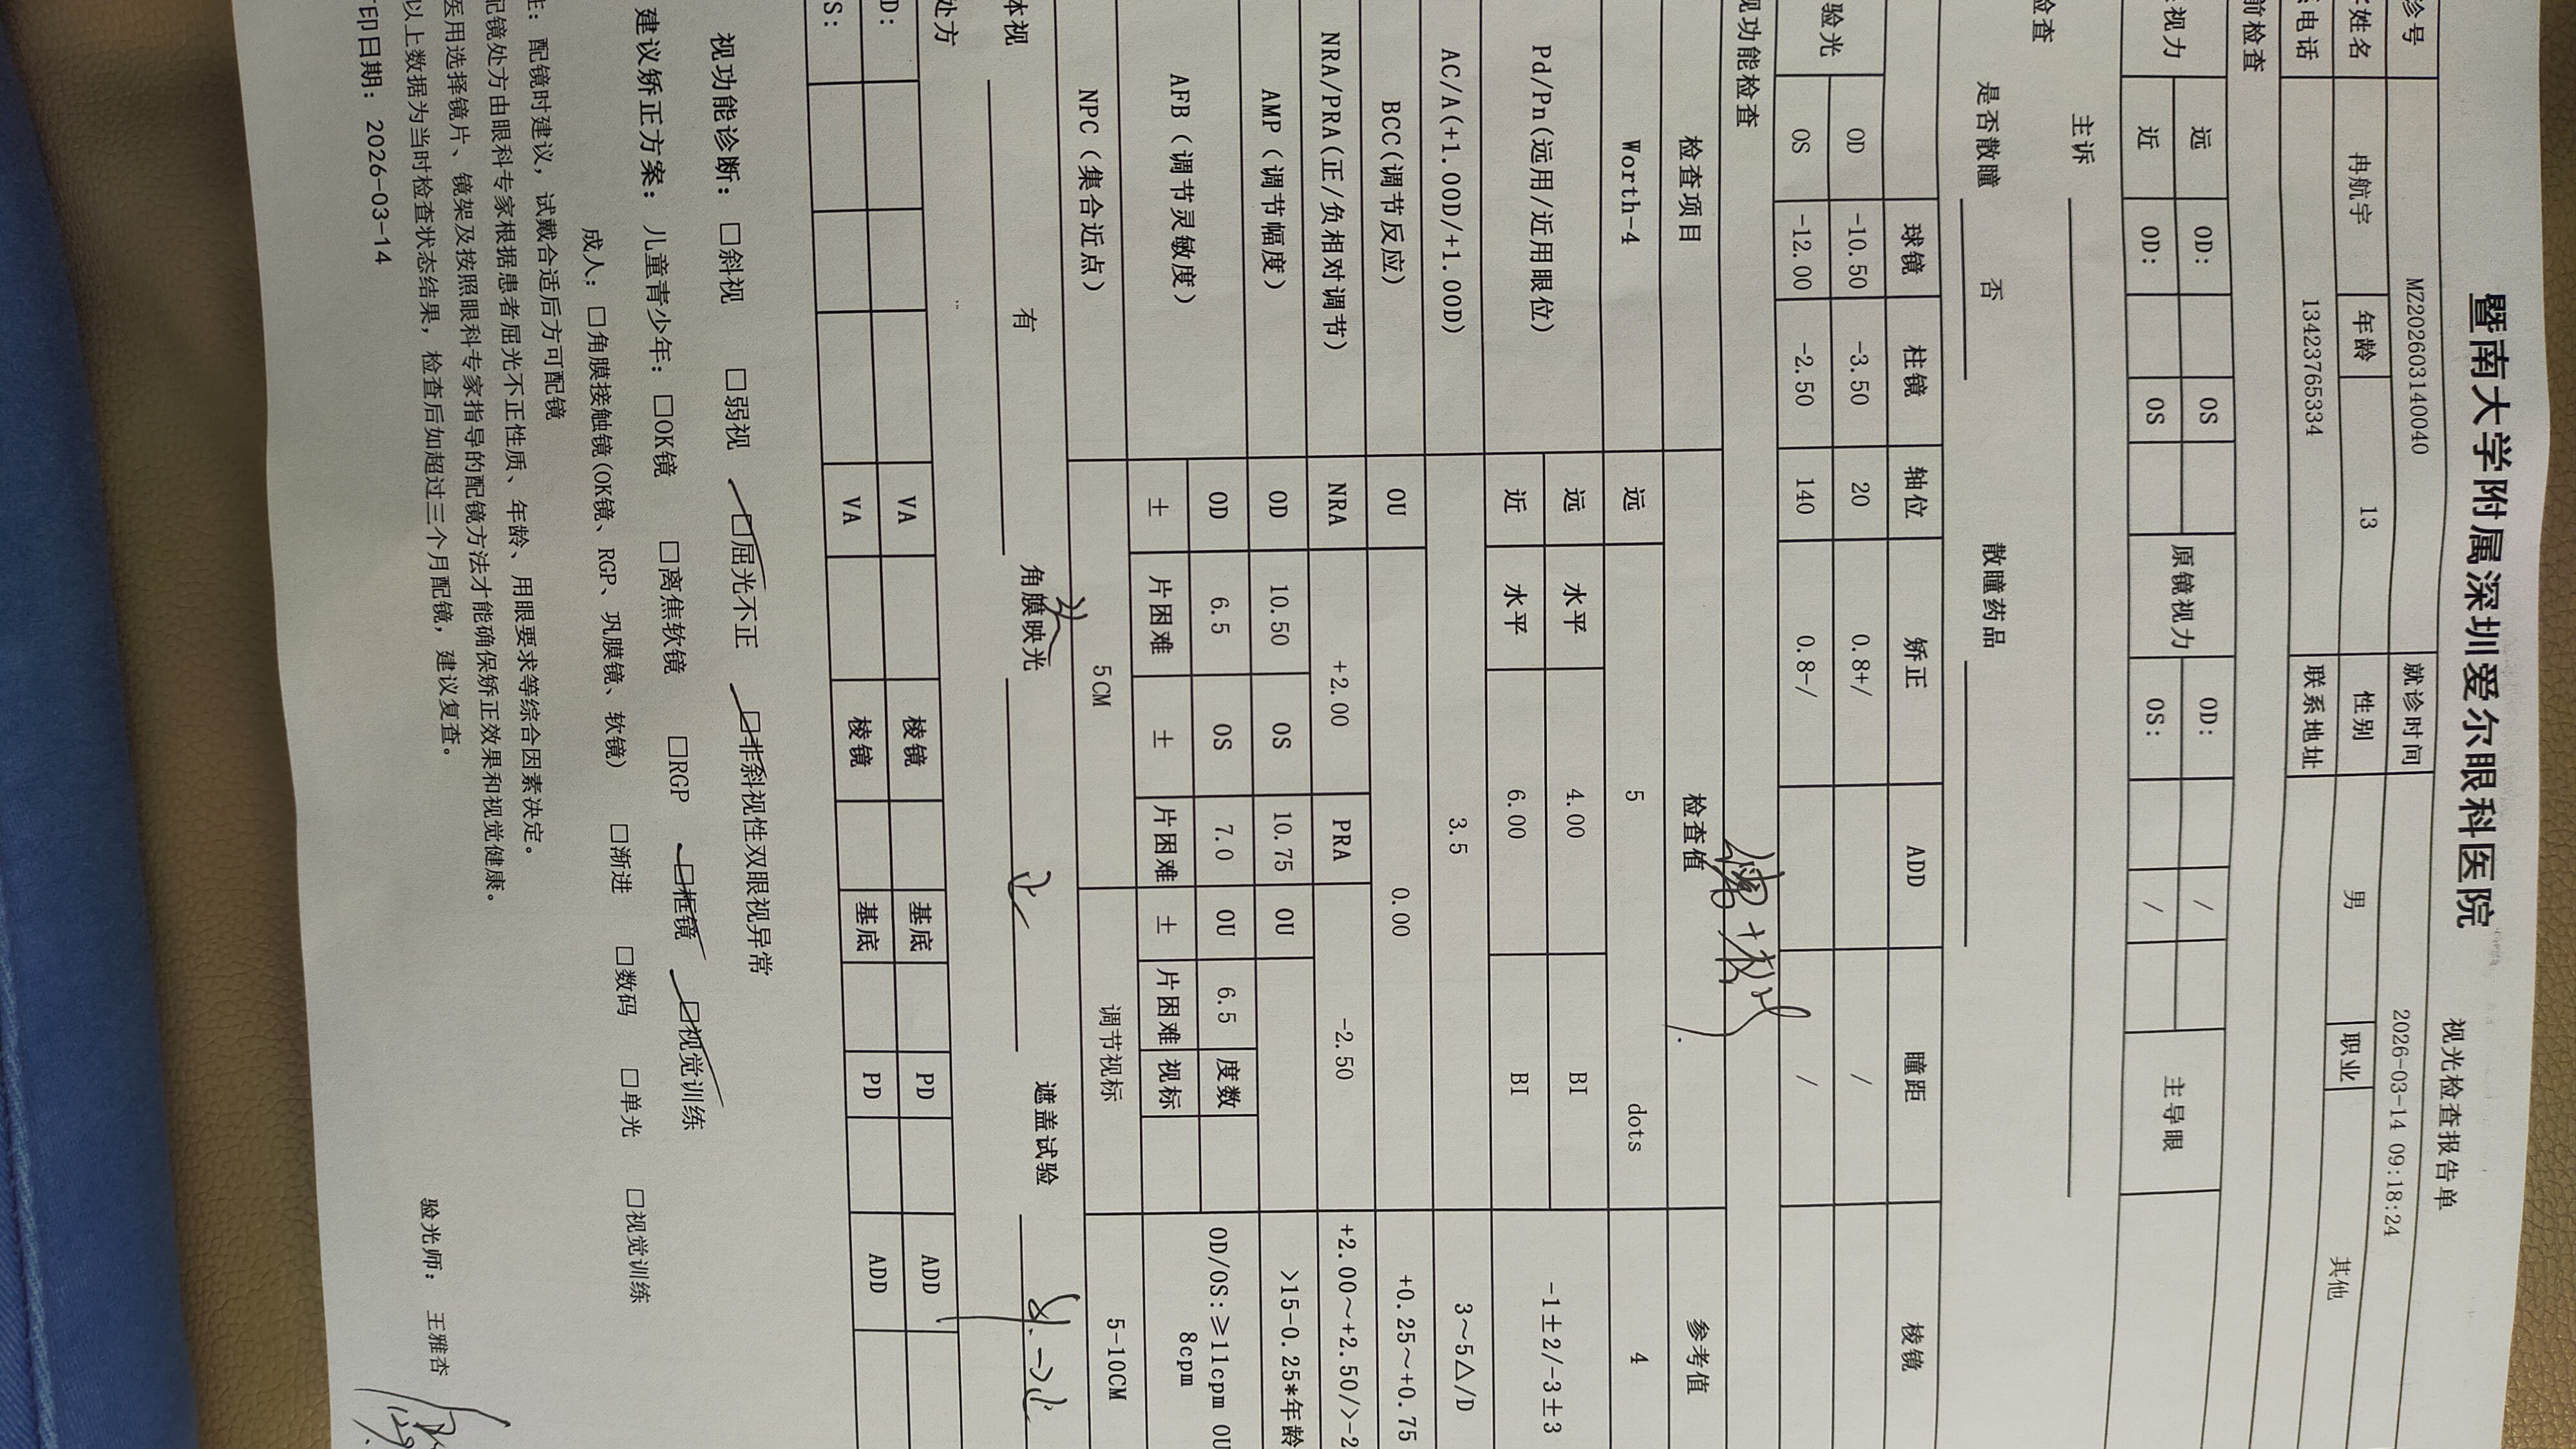 暨南大学附属深圳爱尔眼科医院
视光检查报告单
诊号 MZ202603140040 就诊时间 2026-03-14 09:18:24
姓名 冉航宇 年龄 13 性别 男 职业 其他
电话 13423765334 联系地址
前检查
视力 远 OD: OS 原镜视力 OD: / 主导眼
近 OD: OS OS: /
主诉
检查
是否散瞳 否 散瞳药品
验光 球镜 柱镜 轴位 矫正 ADD 瞳距 棱镜
OD -10.50 -3.50 20 0.8+/ /
OS -12.00 -2.50 140 0.8-/ /
视功能检查
检查项目 检查值 参考值
Worth-4 远 5 dots 4
Pd/Pn(远用/近用眼位) 远 水平 4.00 BI -1±2/-3±3
近 水平 6.00 BI
AC/A(+1.00D/+1.00D) 3.5 3～5△/D
BCC(调节反应) OU 0.00 +0.25～+0.75
NRA/PRA(正/负相对调节) NRA +2.00 PRA -2.50 +2.00～+2.50/>-2
AMP (调节幅度) OD 10.50 OS 10.75 OU >15-0.25*年龄
AFB (调节灵敏度) OD 6.5 OS 7.0 OU 6.5 度数 OD/OS:≥11cpm OU
± 片困难 ± 片困难 ± 片困难 视标 8cpm
NPC (集合近点) 5CM 调节视标 5-10CM
体视 有 角膜映光 正 遮盖试验
处方
D: VA 棱镜 基底 PD ADD
S: VA 棱镜 基底 PD ADD
视功能诊断: □斜视 □弱视 □屈光不正 □非斜视性双眼视异常
建议矫正方案: 儿童青少年: □OK镜 □离焦软镜 □RGP □框镜 □视觉训练
成人: □角膜接触镜(OK镜、RGP、巩膜镜、软镜) □渐进 □数码 □单光 □视觉训练
注: 配镜时建议, 试戴合适后方可配镜
配镜处方由眼科专家根据患者屈光不正性质、年龄、用眼要求等综合因素决定。
医用选择镜片、镜架及按照眼科专家指导的配镜方法才能确保矫正效果和视觉健康。
以上数据为当时检查状态结果, 检查后如超过三个月配镜, 建议复查。
印日期: 2026-03-14 验光师: 王雅杏